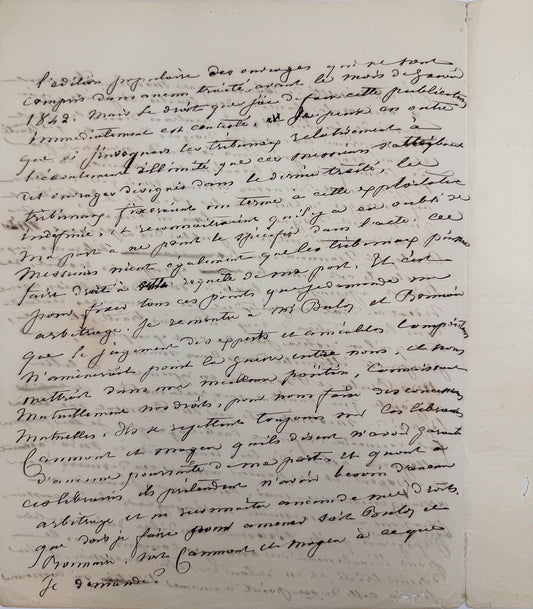 l'edition populaire des ouvrages qui ne sont
compris dans aucun traité, avant le mois de Janvier
1842. Mais le droit que j'ai de faire cette publication
immediatement est contesté. Je pense en outre
que si j'invoquais les tribunaux relativement à
l'écoulement illimité que ces messieurs s'attribuent
des ouvrages designés dans le dernier traité, les
tribunaux fixeraient un terme à cette exploitation
indéfinie, et reconnaitraient qu'il y a eu oubli de
ma part à ne point le spécifier dans l'acte. Ces
Messieurs nient également que les tribunaux puissent
faire droit à requete de ma part. Et c'est
pour fixer tous ces points que je demande un
arbitrage. Je remontre à Mrs Buloz et Bonnaire
que le jugement des experts et amiables compositeurs
n'amenerait point la guerre entre nous, et nous
mettrait dans une meilleure position, connaissant
mutuellement nos droits, pour nous faire des concessions
mutuelles. Ils se rejettent toujours sur les libraires
Canmont et Magen qu'ils disent n'avoir jamais
d'aucune poursuite de ma part, et quant à
ces libraires ils prétendent n'avoir besoin d'aucun
arbitrage et ne reconnaitre aucun de mes droits.
que dois je faire pour amener soit Buloz et
Bonnaire, soit Canmont et Magen à ce que
Je demande?